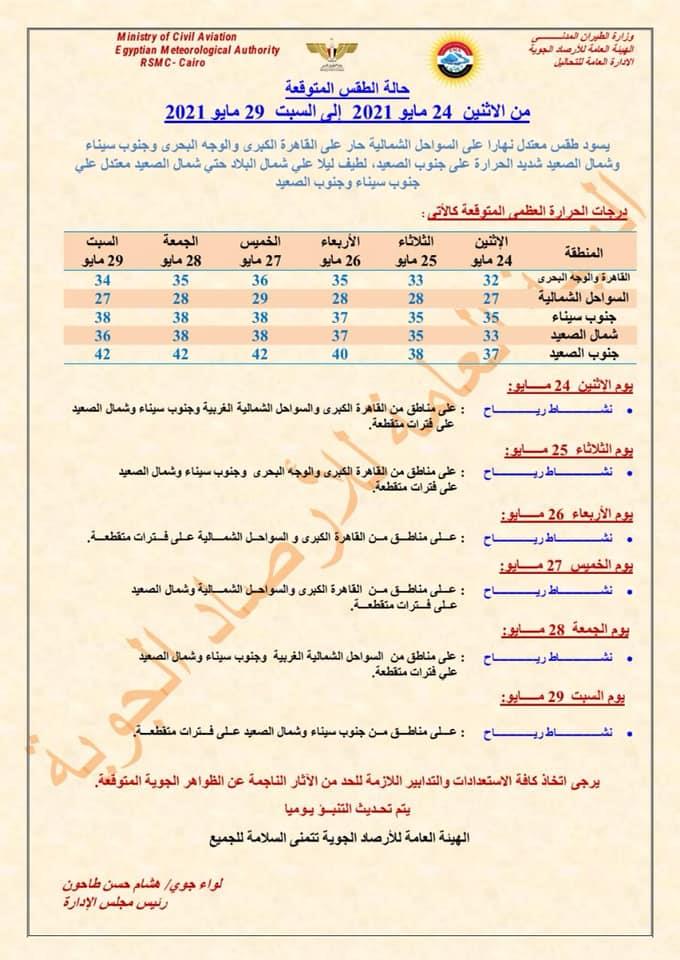 Ministry of Civil Aviation
Egyptian Meteorological Authority
RSMC- Cairo
وزارة الطيران المدنـــــــى
الهيئة العامة للأرصاد الجوية
الادارة العامة للتحاليل
حالة الطقس المتوقعة
من الاثنين 24 مايو 2021 إلى السبت 29 مايو 2021
يسود طقس معتدل نهارا على السواحل الشمالية حار على القاهرة الكبرى والوجه البحرى وجنوب سيناء
وشمال الصعيد شديد الحرارة على جنوب الصعيد، لطيف ليلا علي شمال البلاد حتي شمال الصعيد معتدل علي
جنوب سيناء وجنوب الصعيد
درجات الحرارة العظمى المتوقعة كالأتى:
المنطقة الإثنين 24 مايو الثلاثاء 25 مايو الأربعاء 26 مايو الخميس 27 مايو الجمعة 28 مايو السبت 29 مايو
القاهرة والوجه البحرى 32 33 35 36 35 34
السواحل الشمالية 27 28 28 29 28 27
جنوب سيناء 35 35 37 38 38 38
شمال الصعيد 33 35 37 38 38 36
جنوب الصعيد 37 38 40 42 42 42
يوم الاثنين 24 مـــــايو:
• نشـــــــــاط ريـــــــــــاح : على مناطق من القاهرة الكبرى والسواحل الشمالية الغربية وجنوب سيناء وشمال الصعيد
على فترات متقطعة.
يوم الثلاثاء 25 مـــــايو:
• نشـــــــــاط ريـــــــــــاح : على مناطق من القاهرة الكبرى والوجه البحرى وجنوب سيناء وشمال الصعيد
على فترات متقطعة.
يوم الأربعاء 26 مـــــايو:
• نشـــــــــاط ريـــــــــــاح : علـــى مناطـــق مـــن القاهرة الكبرى و السواحـــل الشمـــالية علـــى فـــترات متقطعـــة.
يوم الخميس 27 مـــــايو:
• نشـــــــــاط ريـــــــــــاح : علـــى مناطـــق مـــن القاهرة الكبرى والسواحـــل الشمـــالية وشمال الصعيد
علـــى فـــترات متقطعـــة.
يوم الجمعة 28 مـــــايو:
• نشـــــــــاط ريـــــــــــاح : على مناطق من السواحل الشمالية الغربية وجنوب سيناء وشمال الصعيد
علي فترات متقطعة.
يوم السبت 29 مـــــايو:
• نشـــــــــاط ريـــــــــــاح : علـــى مناطـــق مـــن جنوب سيناء وشمال الصعيد علـــى فـــترات متقطعـــة.
يرجى اتخاذ كافة الاستعدادات والتدابير اللازمة للحد من الآثار الناجمة عن الظواهر الجوية المتوقعة.
يتم تحديث التنبـــؤ يوميا
الهيئة العامة للأرصاد الجوية تتمنى السلامة للجميع
لواء جوي/ هشام حسن طاحون
رئيس مجلس الإدارة
الهيئة العامة للأرصاد الجوية